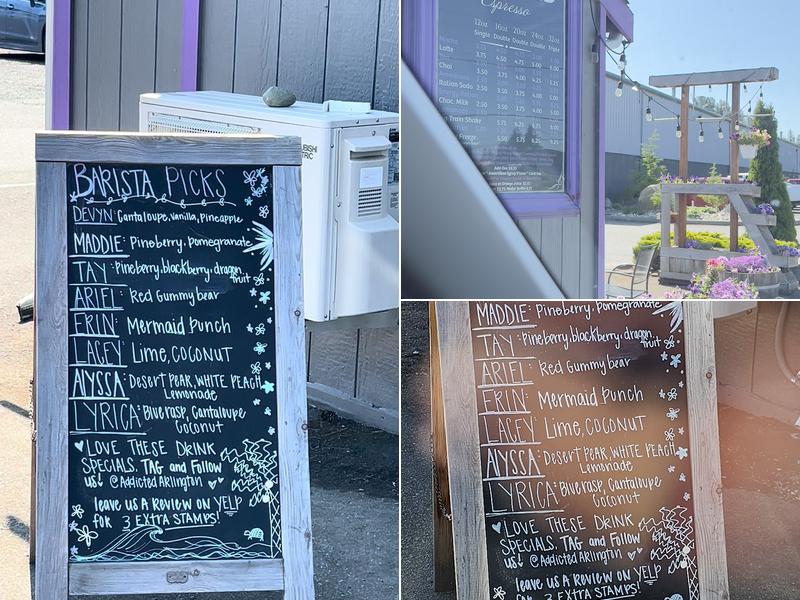 BARISTA PICKS
DEVYN: Cantaloupe, vanilla, pineapple
MADDIE: Pineberry, pomegranate
TAY: Pineberry, blackberry, dragon
fruit
ARIEL: Red Gummy bear
ERIN: Mermaid Punch
LACEY: Lime, COCONUT
ALYSSA: Desert PEAR, WHITE PEACH
Lemonade
LYRICA: Blue rasp, Cantaloupe
Coconut
♥ LOVE THESE DRINK
SPECIALS. TAG and Follow
us! @Addicted ARlington ♥♥
leave us A Review on YELP
for 3 EXTRA STAMPS!
Espresso
12oz 16oz 20oz 24oz 32oz
Single Double Double Double Triple
Mocha
Latte
Chai
Americano
Italian Soda
Energy
Choc. Milk
Train Shake
Freeze
MADDIE: Pineberry, pomegranate
TAY: Pineberry, blackberry, dragon
fruit
ARIEL: Red Gummy bear
ERIN: Mermaid Punch
LACEY: Lime, COCONUT
ALYSSA: Desert PEAR, WHITE PEACH
Lemonade
LYRICA: Blue rasp, Cantaloupe
Coconut
♥ LOVE THESE DRINK
SPECIALS. TAG and Follow
us! @Addicted ARlington ♥♥
leave us A Review on YELP
for 3 EXTRA STAMPS!